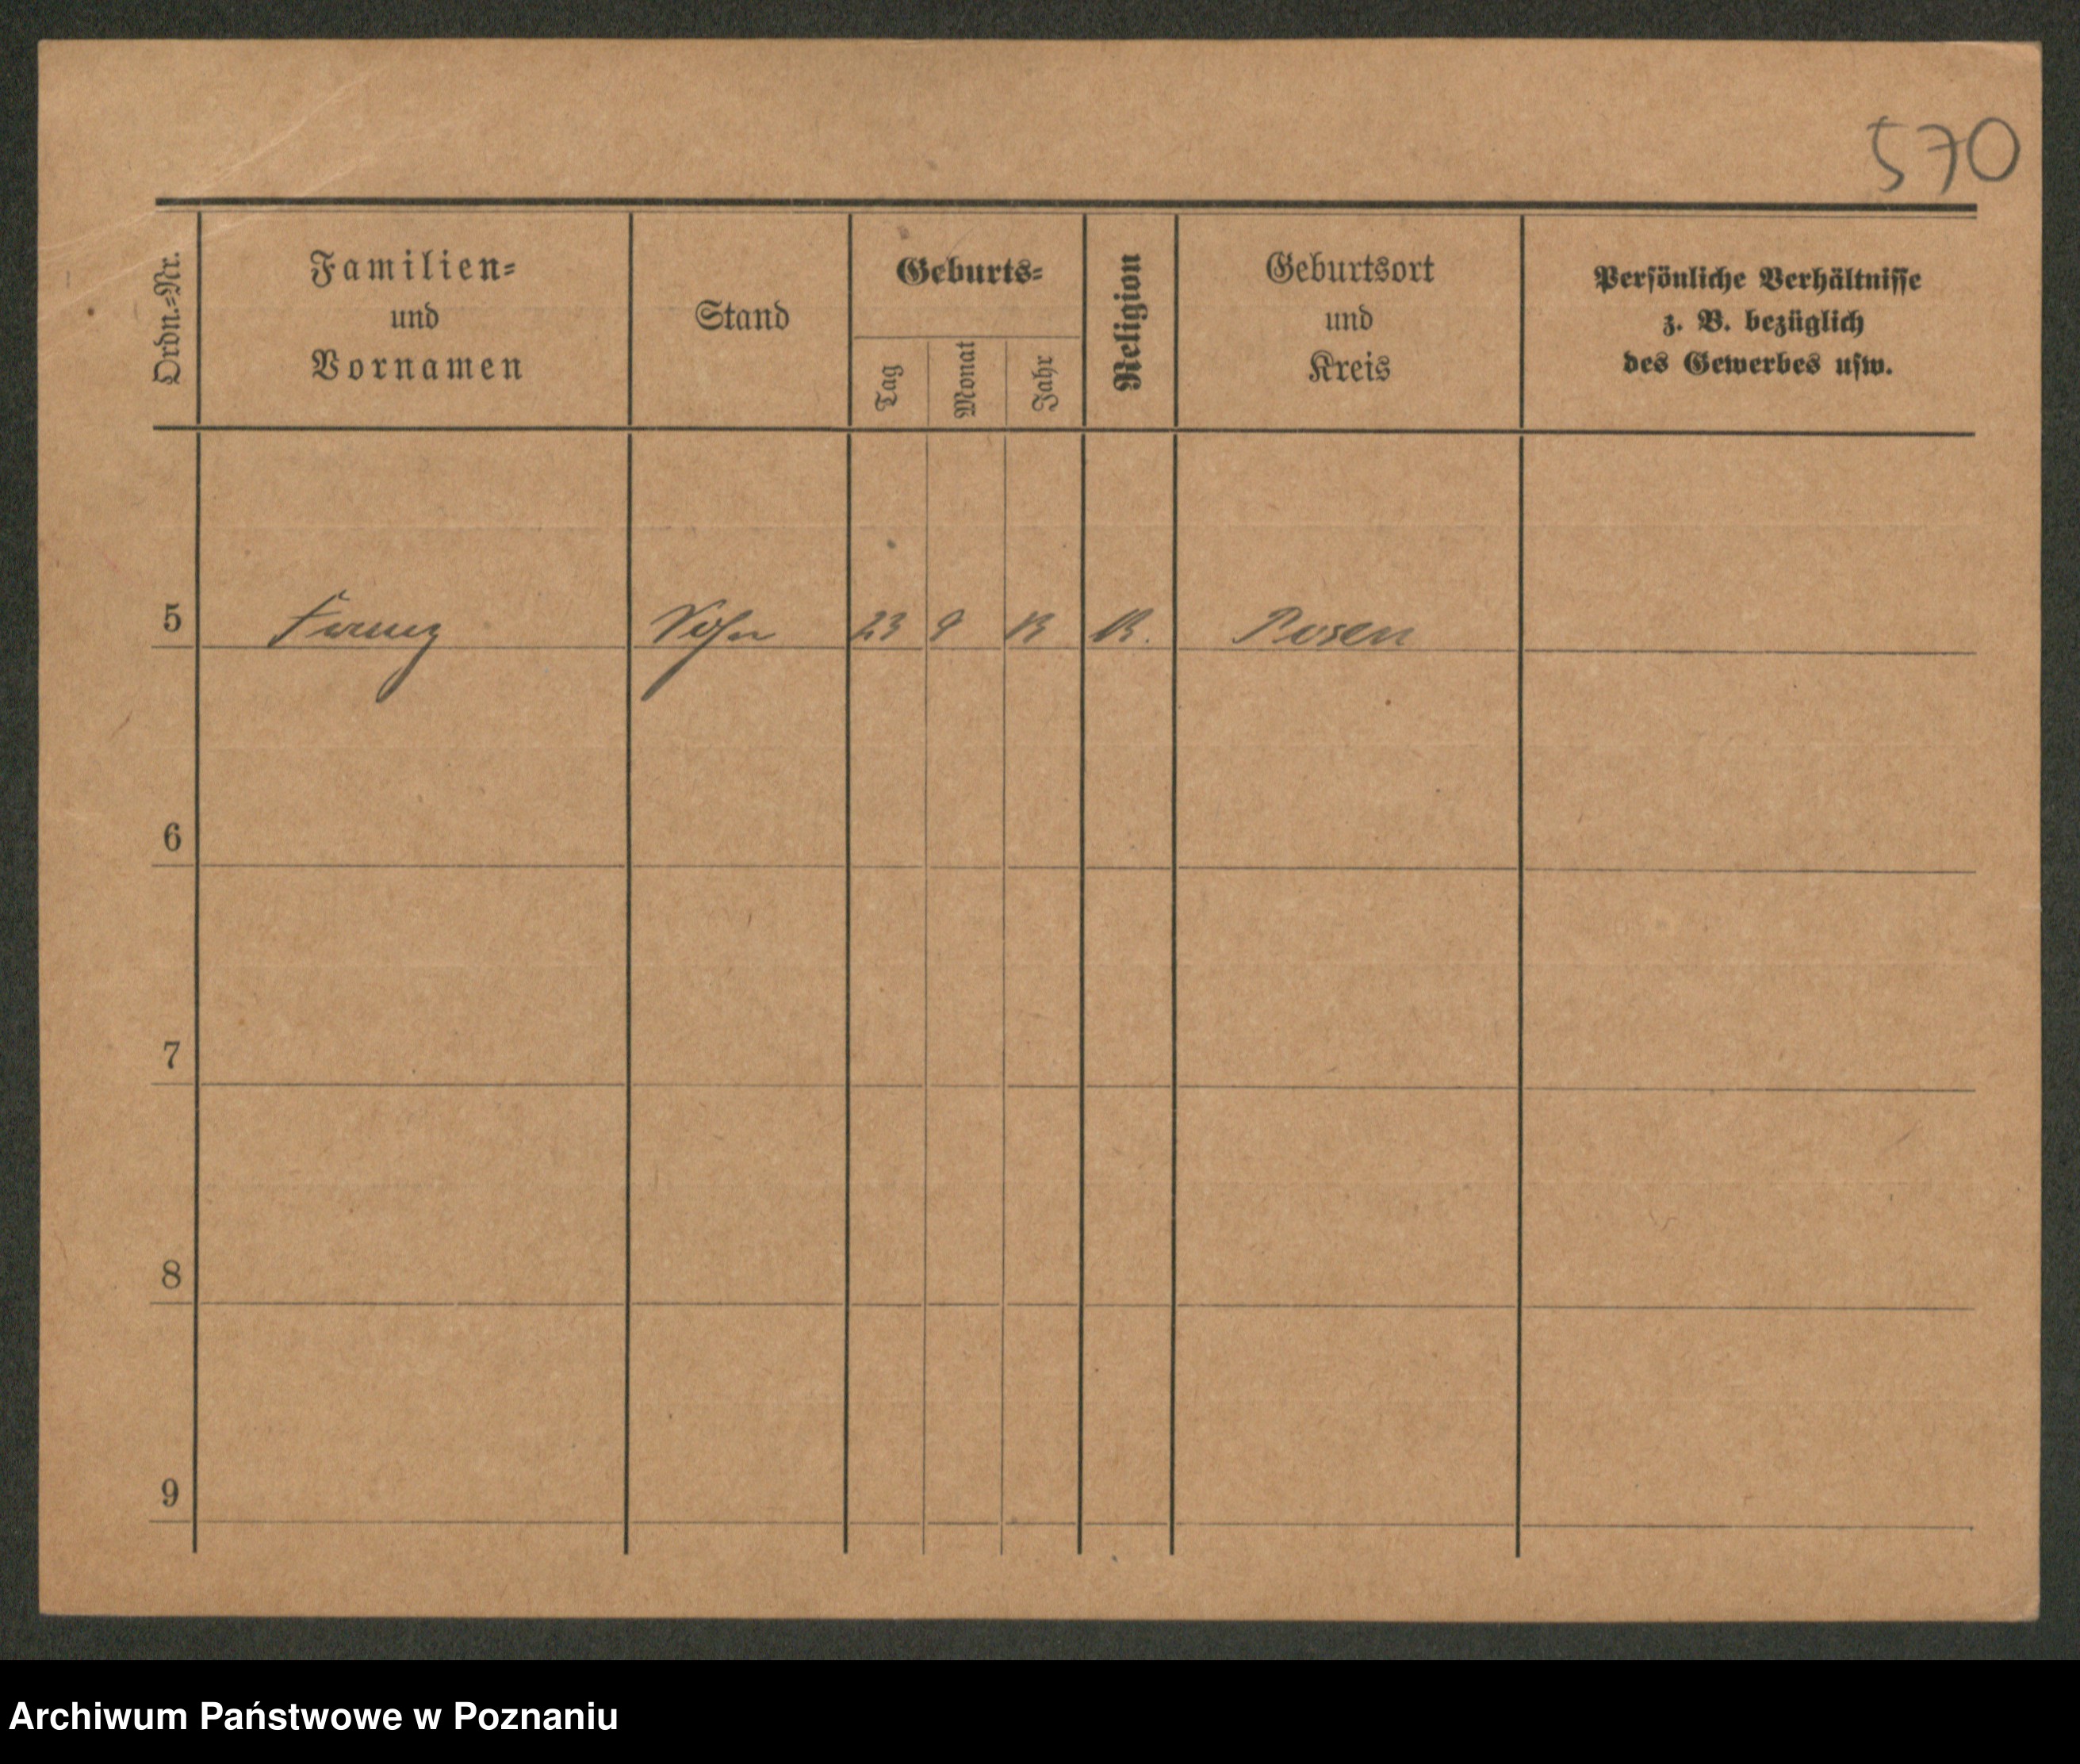 570
Ordn.=Nr.
Familien=
und
Vornamen
Stand
Geburts=
Tag
Monat
Jahr
Religion
Geburtsort
und
Kreis
Persönliche Verhältnisse
z. B. bezüglich
des Gewerbes usw.
5 Franz Sohn 23 9 13 Posen
6
7
8
9
Archiwum Państwowe w Poznaniu